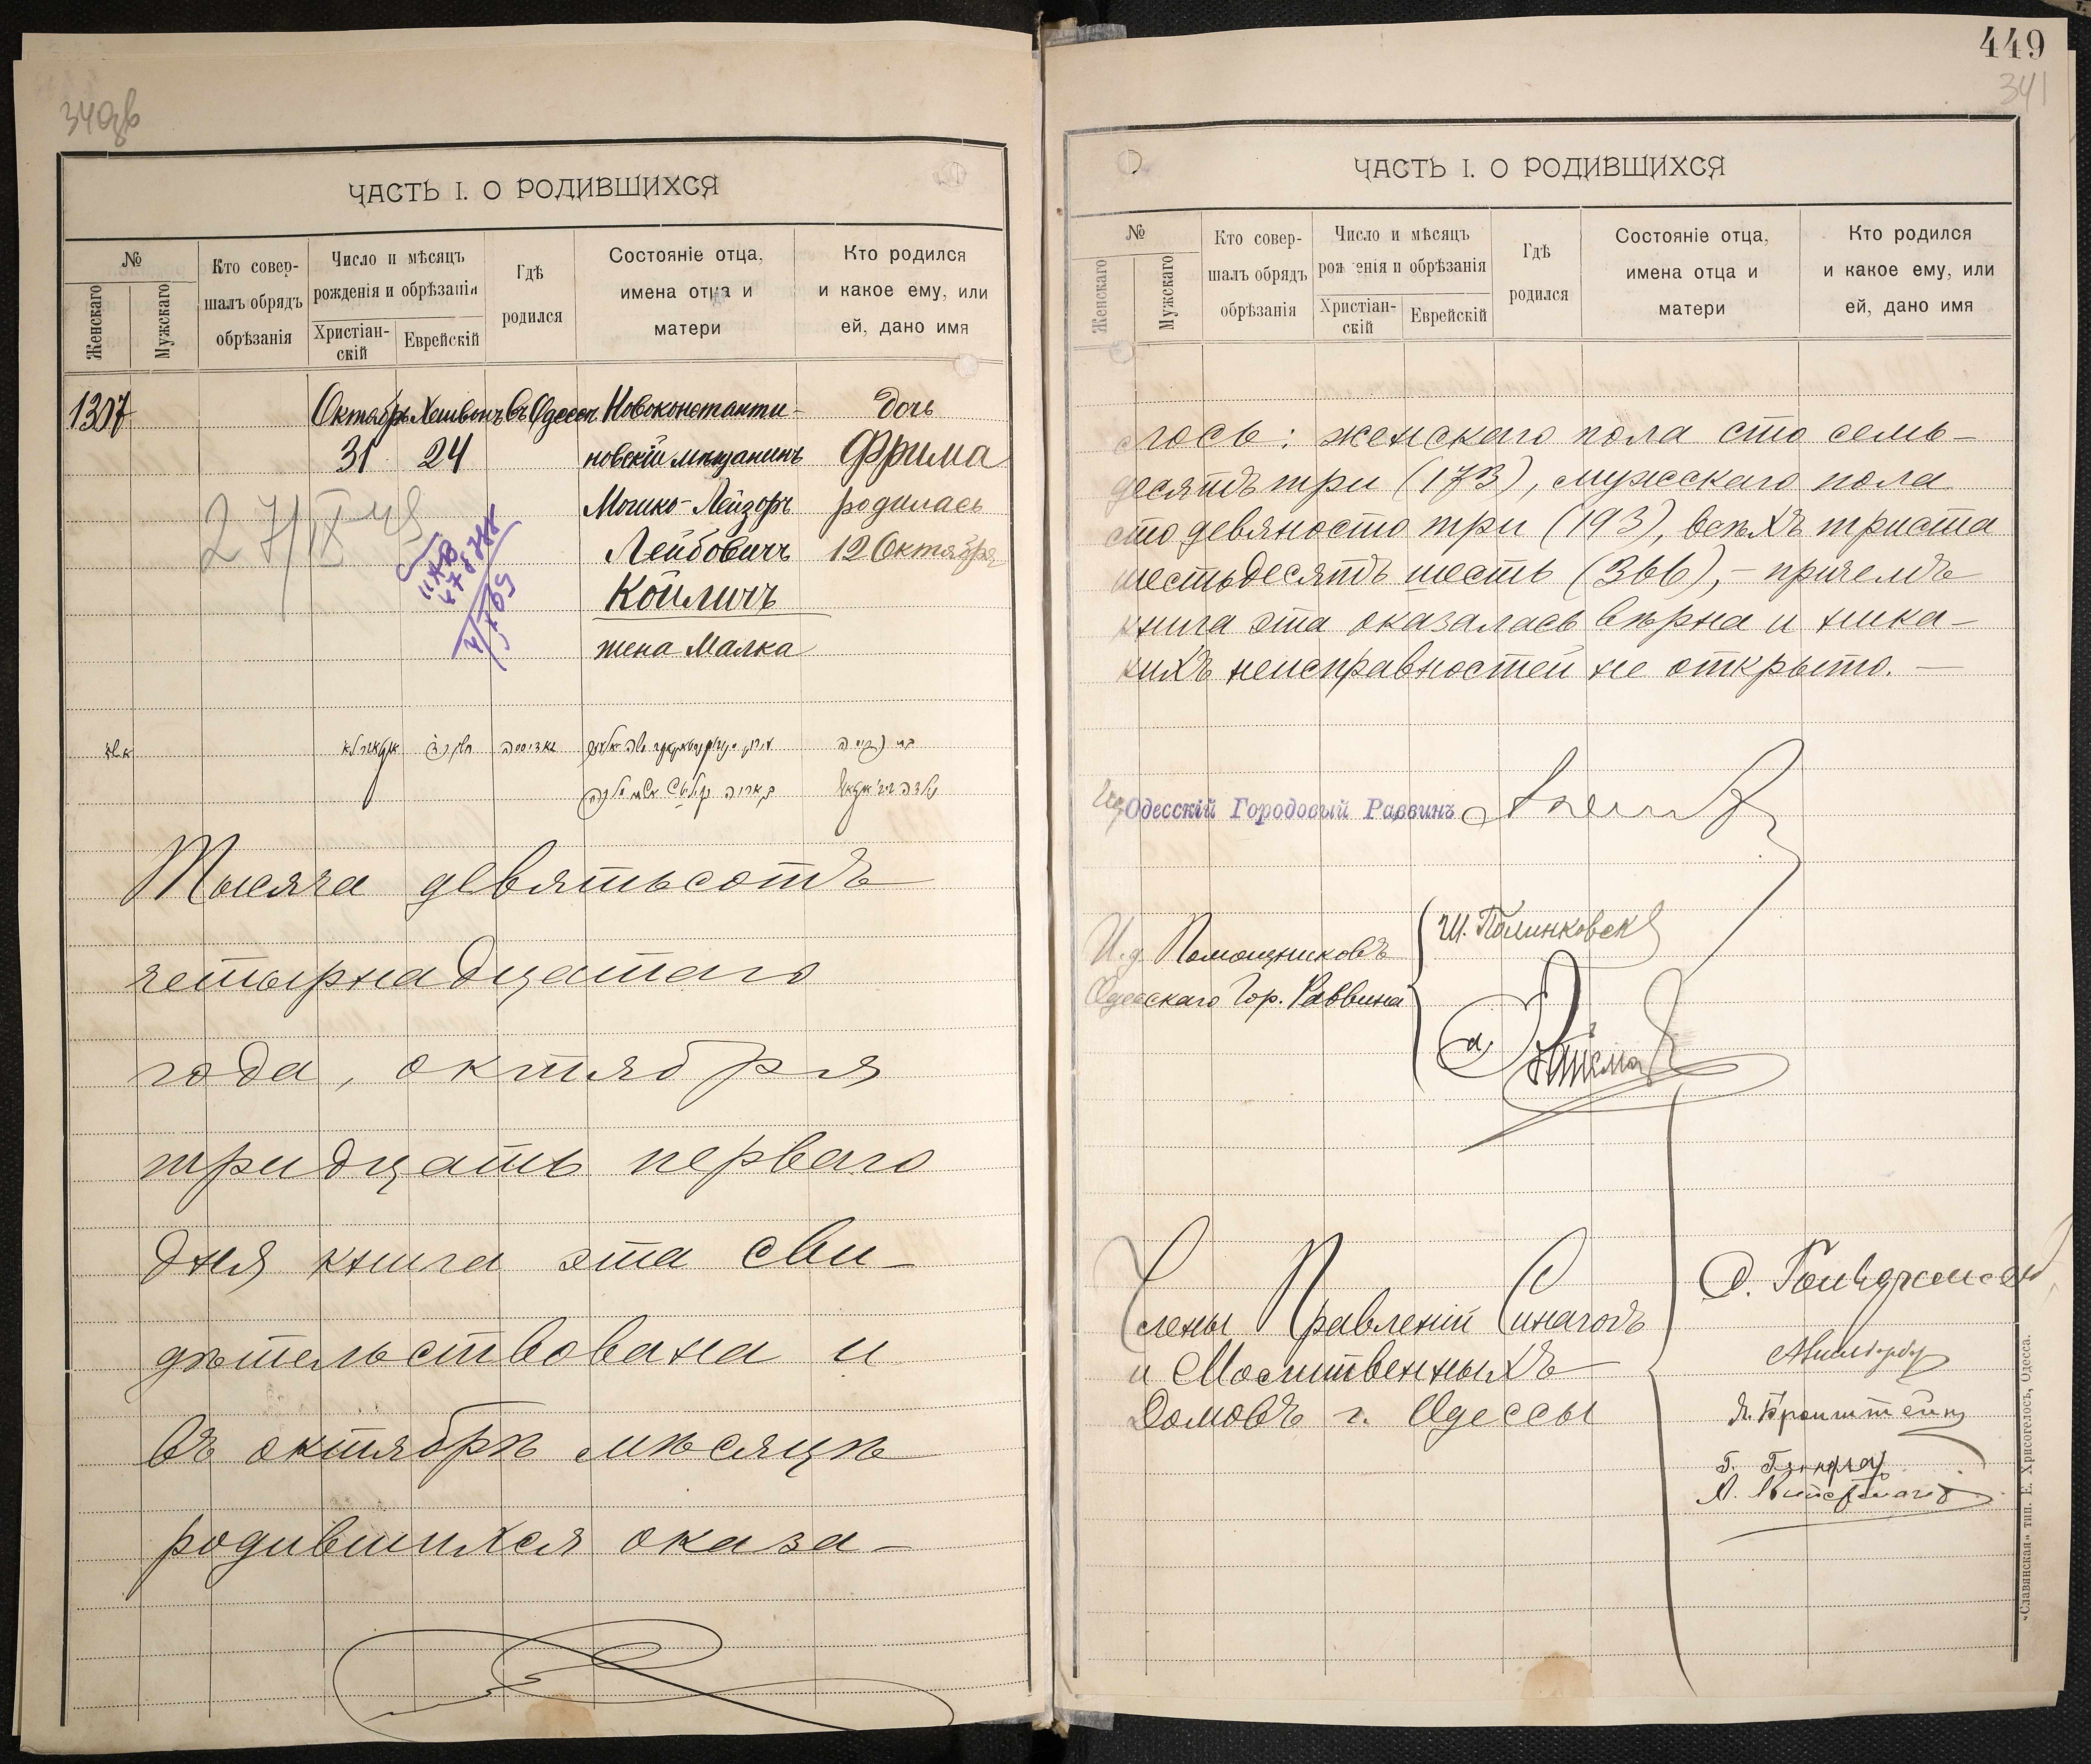 340об
ЧАСТЬ I. О РОДИВШИХСЯ
№
Женскаго
Мужскаго
Кто совер-
шалъ обрядъ
обрѣзанія
Число и мѣсяцъ
рожденія и обрѣзанія
Христіан-
скій
Еврейскій
Гдѣ
родился
Состояніе отца,
имена отца и
матери
Кто родился
и какое ему, или
ей, дано имя
1307 Октябрь Хешвонъ въ Одессѣ Новоконстанти- дочь
31 24 новскій мѣщанинъ Фрима
Мошко-Лейзоръ родилась
Лейбовичъ 12 Октября
Койличъ
жена Малка
27/IX 49
Тысяча девятьсотъ
четырнадцатаго
года, октября
тридцать перваго
дня книга эта сви-
дѣтельствована и
въ октябрѣ мѣсяцѣ
родившихся оказа-
449
341
ЧАСТЬ I. О РОДИВШИХСЯ
№
Женскаго
Мужскаго
Кто совер-
шалъ обрядъ
обрѣзанія
Число и мѣсяцъ
рожденія и обрѣзанія
Христіан-
скій
Еврейскій
Гдѣ
родился
Состояніе отца,
имена отца и
матери
Кто родился
и какое ему, или
ей, дано имя
лось: женскаго пола сто семь-
десятъ три (173), мужскаго пола
сто девяносто три (193), всѣхъ триста
шестьдесятъ шесть (366),- причемъ
книга эта оказалась вѣрна и ника-
кихъ неисправностей не открыто. —
Одесскій Городовый Раввинъ
И.д. Помощниковъ
Одесскаго Гор. Раввина
Ш. Полинковск
Члены Правленій Синагогъ
и Молитвенныхъ
Домовъ г. Одессы
Я. Бронштейнъ
«Славянская» тип. Е. Хрисогелосъ, Одесса.